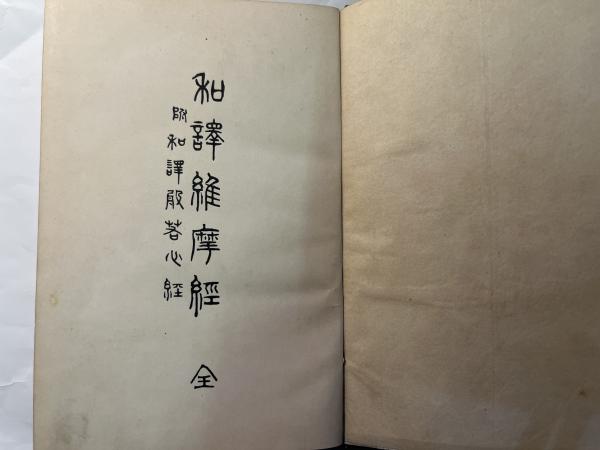 和譯維摩經 全
附和譯般若心経